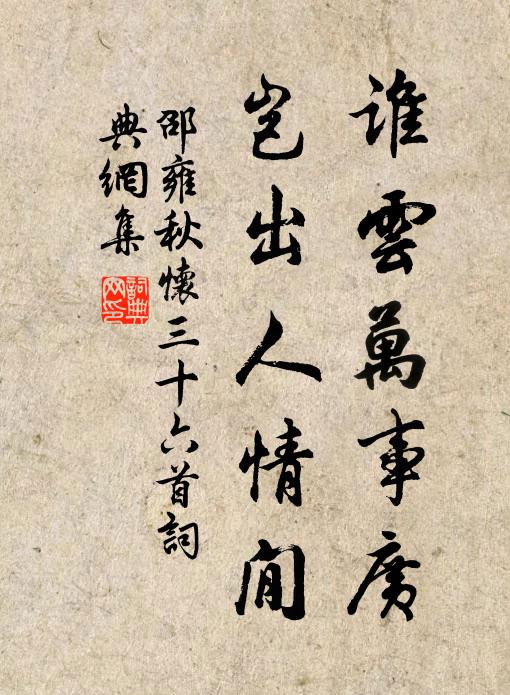 誰雲萬事廣
豈出人情間
邵雍秋懷三十六首詞
典網集
詞典網印